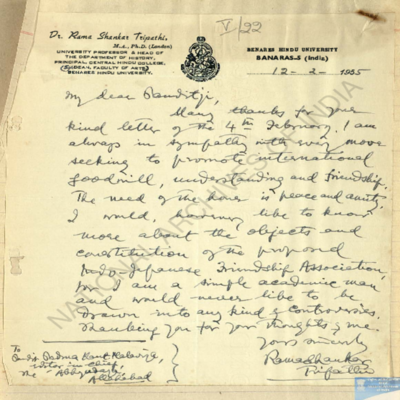 V/22
Dr. Rama Shankar Tripathi,
M.A., Ph.D. (London)
UNIVERSITY PROFESSOR & HEAD OF
THE DEPARTMENT OF HISTORY,
PRINCIPAL CENTRAL HINDU COLLEGE,
FACULTY OF ARTS
BENARES HINDU UNIVERSITY.
BENARES HINDU UNIVERSITY
BANARAS-5 (India)
12-2-1955
My dear Panditji,
Many thanks for your
kind letter of the 4th February. I am
always in sympathy with every move
seeking to promote international
goodwill, understanding and friendship.
The need of the hour is peace and amity.
I would, however like to know
more about the objects and
constitution of the proposed
Indo-Japanese Friendship Association,
for I am a simple academic man
and would never like to be
drawn into any kind of controversies.
Thanking you for your thoughts of me.
Yours sincerely
Rama Shankar
Tripathi
To
Pandit Padma Kant Malaviya,
Editor in Chief,
The Abhyudaya
Allahabad
NATIONAL ARCHIVES OF INDIA